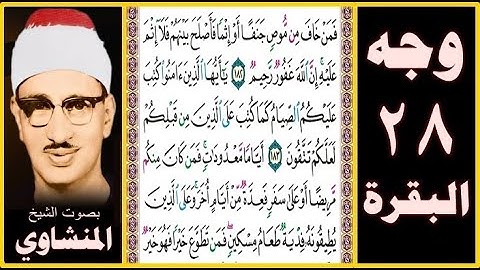 وجه
٢٨
البقرة
فَمَنْ خَافَ مِن مُّوصٍ جَنَفًا أَوْ إِثْمًا فَأَصْلَحَ بَيْنَهُمْ فَلَا إِثْمَ
عَلَيْهِ إِنَّ اللَّهَ غَفُورٌ رَّحِيمٌ ١٨٢ يَٰأَيُّهَا الَّذِينَ ءَامَنُوا كُتِبَ
عَلَيْكُمُ الصِّيَامُ كَمَا كُتِبَ عَلَى الَّذِينَ مِن قَبْلِكُمْ
لَعَلَّكُمْ تَتَّقُونَ ١٨٣ أَيَّامًا مَّعْدُودَٰتٍ فَمَن كَانَ مِنكُم
مَّرِيضًا أَوْ عَلَىٰ سَفَرٍ فَعِدَّةٌ مِّنْ أَيَّامٍ أُخَرَ وَعَلَى الَّذِينَ
يُطِيقُونَهُ فِدْيَةٌ طَعَامُ مِسْكِينٍ فَمَن تَطَوَّعَ خَيْرًا فَهُوَ خَيْرٌ
بصوت الشيخ
المنشاوي